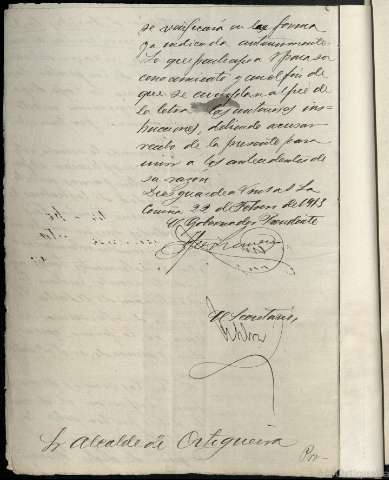 se verificará en la forma
ya indicada anteriormente.
Lo que participo a V para su
conocimiento y con el fin de
que se cumplan al pié de
la letra las anteriores ins-
trucciones, debiendo acusar
recibo de la presente para
unir a los antecedentes de
su razón.
Dios guarde a V m a s La
Coruña 22 de Febrero de 1913
El Gobernador Presidente
El Secretario,
Sr Alcalde de Ortigueira